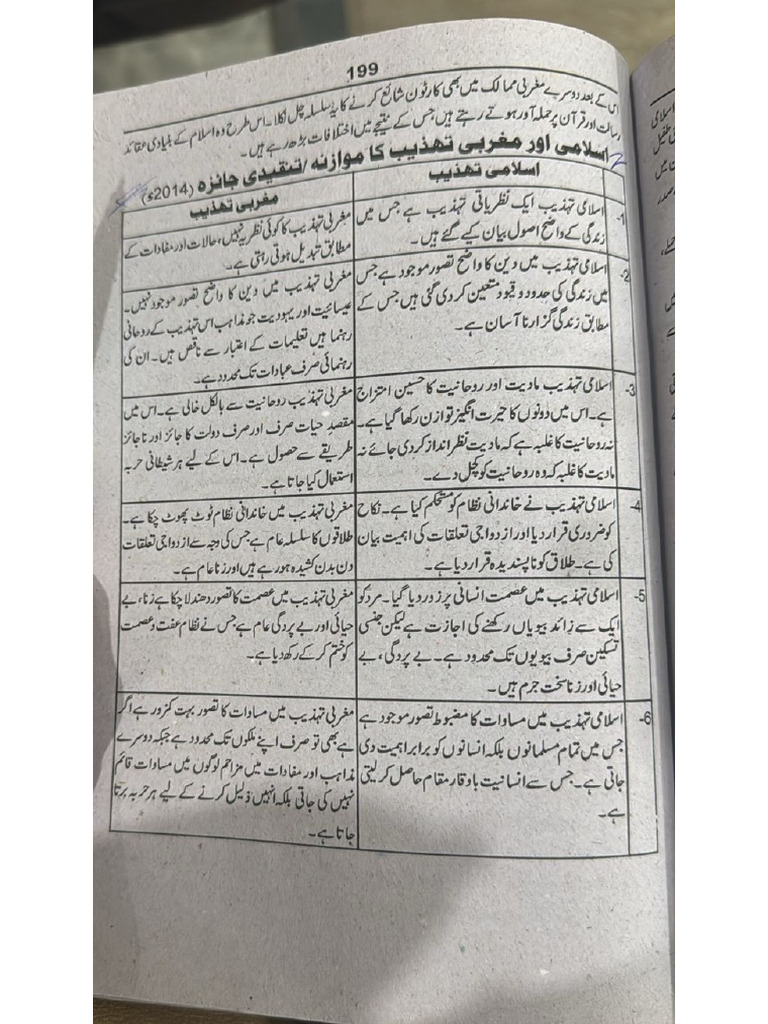 199
اس کے بعد دوسرے مغربی ممالک میں بھی کارٹون شائع کرنے کا یہ سلسلہ چل نکلا۔ اس طرح وہ اسلام کے بنیادی عقائد
رسالت اور قرآن پر حملہ آور ہوتے رہتے ہیں جس کے نتیجے میں اختلافات بڑھ رہے ہیں۔
اسلامی اور مغربی تہذیب کا موازنہ/تنقیدی جائزہ (2014ء)
اسلامی تہذیب
مغربی تہذیب
-1
اسلامی تہذیب ایک نظریاتی تہذیب ہے جس میں
زندگی کے واضح اصول بیان کیے گئے ہیں۔
مغربی تہذیب کا کوئی نظریہ نہیں، حالات اور مفادات کے
مطابق تبدیل ہوتی رہتی ہے۔
-2
اسلامی تہذیب میں دین کا واضح تصور موجود ہے جس
میں زندگی کی حدود و قیود متعین کر دی گئی ہیں جس کے
مطابق زندگی گزارنا آسان ہے۔
مغربی تہذیب میں دین کا واضح تصور موجود نہیں۔
عیسائیت اور یہودیت جو مذاہب اس تہذیب کے روحانی
رہنما ہیں تعلیمات کے اعتبار سے ناقص ہیں۔ ان کی
رہنمائی صرف عبادات تک محدود ہے۔
-3
اسلامی تہذیب مادیت اور روحانیت کا حسین امتزاج
ہے۔ اس میں دونوں کا حیرت انگیز توازن رکھا گیا ہے۔
نہ روحانیت کا غلبہ ہے کہ مادیت نظر انداز کر دی جائے نہ
مادیت کا غلبہ کہ وہ روحانیت کو کچل دے۔
مغربی تہذیب روحانیت سے بالکل خالی ہے۔ اس میں
مقصد حیات صرف اور صرف دولت کا جائز اور ناجائز
طریقے سے حصول ہے۔ اس کے لیے ہر شیطانی حربہ
استعمال کیا جاتا ہے۔
-4
اسلامی تہذیب نے خاندانی نظام کو مستحکم کیا ہے۔ نکاح
کو ضروری قرار دیا اور ازدواجی تعلقات کی اہمیت بیان
کی ہے۔ طلاق کو ناپسندیدہ قرار دیا ہے۔
مغربی تہذیب میں خاندانی نظام ٹوٹ پھوٹ چکا ہے۔
طلاقوں کا سلسلہ عام ہے جس کی وجہ سے ازدواجی تعلقات
دن بدن کشیدہ ہو رہے ہیں اور زنا عام ہے۔
-5
اسلامی تہذیب میں عصمت انسانی پر زور دیا گیا۔ مرد کو
ایک سے زائد بیویاں رکھنے کی اجازت ہے لیکن جنسی
تسکین صرف بیویوں تک محدود ہے۔ بے پردگی، بے
حیائی اور زنا سخت جرم ہیں۔
مغربی تہذیب میں عصمت کا تصور دھندلا چکا ہے زنا، بے
حیائی اور بے پردگی عام ہے جس نے نظام عفت و عصمت
کو ختم کر کے رکھ دیا ہے۔
-6
اسلامی تہذیب میں مساوات کا مضبوط تصور موجود ہے
جس میں تمام مسلمانوں بلکہ انسانوں کو برابر اہمیت دی
جاتی ہے۔ جس سے انسانیت باوقار مقام حاصل کر لیتی
ہے۔
مغربی تہذیب میں مساوات کا تصور بہت کمزور ہے اگر
ہے بھی تو صرف اپنے ملکوں تک محدود ہے جبکہ دوسرے
مذاہب اور مفادات میں مزاحم لوگوں میں مساوات قائم
نہیں کی جاتی بلکہ انہیں ذلیل کرنے کے لیے ہر حربہ برتا
جاتا ہے۔